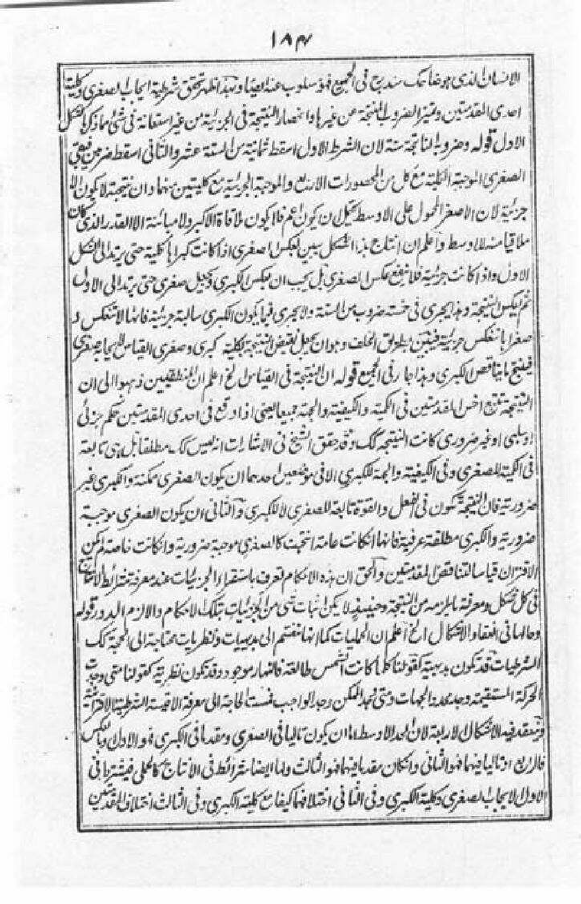 ١٨٣
الانسان الذى هو ضاحك مندرج فى الجميع فهو مسلوب عنه ايضا وبهذا ظهر تحقق شرطية ايجاب الصغرى وكلية
احدى المقدمتين وتميز الضروب المنتجة عن غيرها وانحصار النتيجة فى الجزئية من غير استعانة فى شئ مما ذكر بالشكل
الاول قوله وضروبه الناتجة ستة لان الشرط الاول اسقط ثمانية من الستة عشر والثانى اسقط ضربين فبقى
الصغرى الموجبة الكلية مع كل من المحصورات الاربع والموجبة الجزئية مع كليتين منها وان نتيجته لا يكون الا
جزئية لان الاصغر المحمول على الاوسط يحتمل ان يكون اعم فلا يكون ملاقاة الاكبر ولا مباينته الا القدر الذى كان
ملاقيا منه للاوسط واعلم ان انتاج هذا الشكل يبين بعكس الصغرى اذا كانت كبراه كلية حتى يرتد الى الشكل
الاول واذا كانت جزئية فلا ينفع عكس الصغرى بل يجب ان يعكس الكبرى ويجعل صغرى حتى يرتد الى الاول
ثم يعكس النتيجة وهذا يجرى فى خمسة ضروب من الستة ولا يجرى فيما يكون الكبرى سالبة جزئية فانها لا تنعكس و
صغراها تنعكس جزئية فيتبين بطريق الخلف وهو ان يجعل نقيض النتيجة لكلية كبرى وصغرى القياس لايجابه صغرى
فينتج ما يناقض الكبرى وهذا جار فى الجميع قوله ان النتيجة فى القياس الخ اعلم ان المنطقيين ذهبوا الى ان
النتيجة تتبع اخس المقدمتين فى الكمية والكيفية والجهة جميعا يعنى اذا وقع فى احدى المقدمتين حكم جزئى
او سلبى او غير ضرورى كانت النتيجة كك وقد حقق الشيخ فى الاشارات انه ليس كك مطلقا بل هى تابعة
فى الكمية للصغرى وفى الكيفية والجهة للكبرى الا فى موضعين احدهما ان يكون الصغرى ممكنة والكبرى غير
ضرورية فان النتيجة تكون فى الفعل والقوة تابعة للصغرى لا للكبرى والثانى ان يكون الصغرى موجبة
ضرورية والكبرى مطلقة عرفية فانها ان كانت عامة انتجت كالصغرى موجبة ضرورية وان كانت خاصة لم يكن
الاقتران قياسا لتناقض المقدمتين والحق ان هذه الاحكام تعرف باستقراء الجزئيات عند معرفة شرائط الانتاج
فى كل شكل ومعرفة ما يلزمه من النتيجة وحينئذ لا يمكن اثبات شئ من الجزئيات بتلك الاحكام والا لزم الدور قوله
وحالها فى انعقاد الاشكال الخ اعلم ان الحمليات كما انها تنقسم الى بديهيات ونظريات محتاجة الى الحجة كك
الشرطيات قد تكون بديهية كقولنا كلما كانت الشمس طالعة فالنهار موجود وقد تكون نظرية كقولنا متى وجدت
الحركة المستقيمة وجد محدد الجهات ومتى وجد الممكن وجد الواجب فمست الحاجة الى معرفة الاقيسة الشرطية الاقترانية
وتنعقد فيه الاشكال الاربعة لان الحد الاوسط اما ان يكون تاليا فى الصغرى ومقدما فى الكبرى فهو الاول او بالعكس
فالرابع او تاليا فيهما فهو الثانى وان كان مقدما فيهما فهو الثالث ولها ايضا شرائط فى الانتاج كالحملى فيشترط فى
الاول الايجاب لصغرى وكلية الكبرى وفى الثانى اختلافهما كيفا مع كلية الكبرى وفى الثالث اختلاف المقدمتين